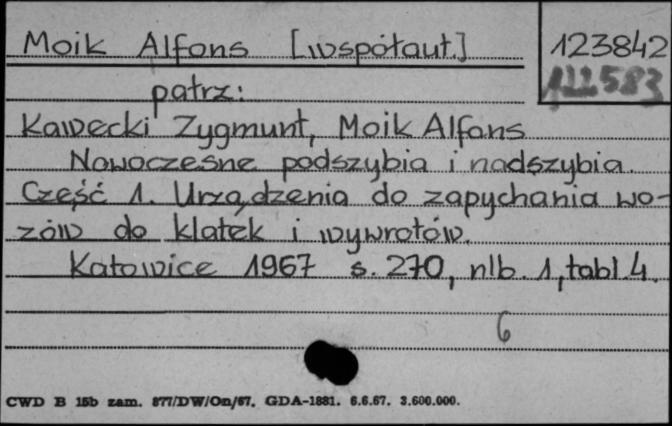 Moik Alfons [współaut.] 123842
122583
patrz:
Kawecki Zygmunt, Moik Alfons
Nowoczesne podszybia i nadszybia.
Część 1. Urządzenia do zapychania wo-
zów do klatek i wywrotów.
Katowice 1967 s. 270, nlb. 1, tabl. 4.
6
CWD B 15b zam. 877/DW/On/67. GDA-1881. 6.6.67. 3.600.000.